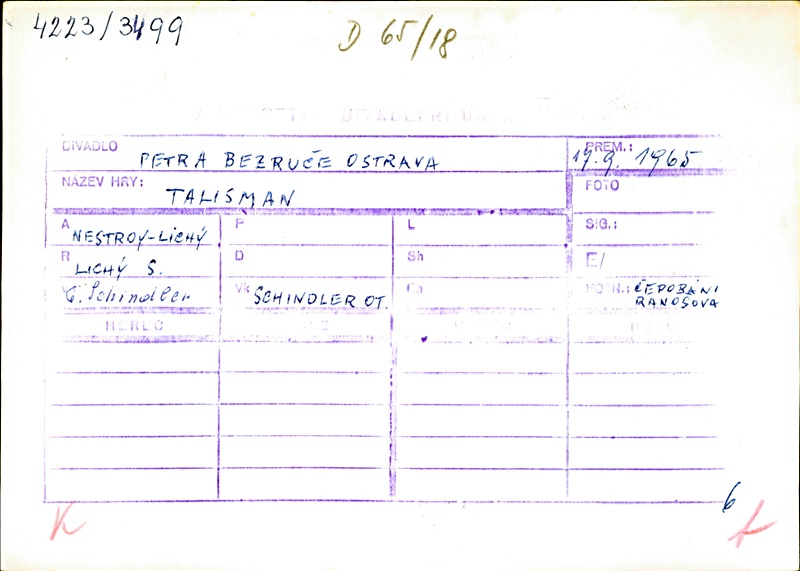 4223/3499
D 65/18
DIVADLO PETRA BEZRUČE OSTRAVA
PREM.: 17.9. 1965
NÁZEV HRY: TALISMAN
FOTO
A NESTROY-LICHÝ
P
L
SIG.:
R LICHÝ S.
D
Sh
E/
O. Schindler
Vk SCHINDLER OT.
POZN.: ČEPOBÁNI
RANOŠOVA
HEREC
6
K